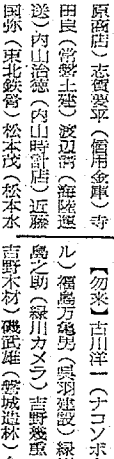 原商店）志賀要平（信用金庫）寺
田良（常磐土建）渡辺清（海陸運
送）内山治徳（内山時計店）近藤
国弥（東北鉄骨）松本茂（松本水
【勿来】古川洋一（ナコソボー
ル）福島万亀男（呉羽建設）緑
島之助（緑川カメラ）吉野幾重
吉野木材）磯武雄（磐城造林）